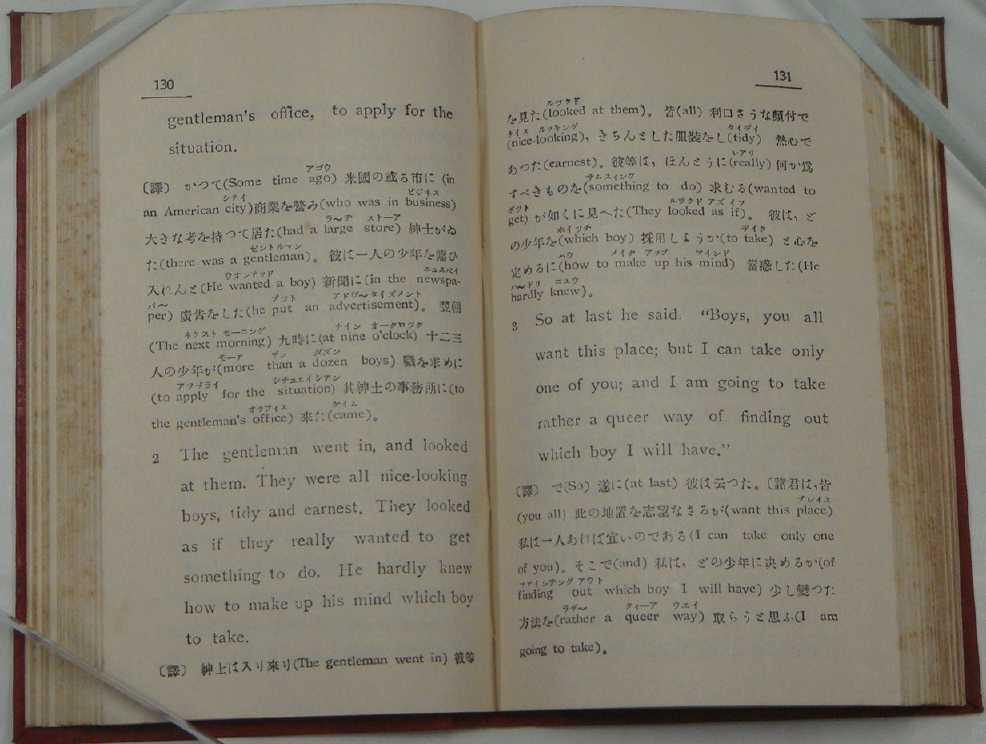 130
gentleman's office, to apply for the
situation.
アゴウ
〔譯〕 かつて(Some time ago) 米國の或る市に (in
シテイ ビジネス
an American city)商業を營み(who was in business)
ラ〜ヂ ストーア
大きな考を持つて居た(had a large store) 紳士がゐ
ゼントルマン
た(there was a gentleman)。 彼は一人の少年を雇ひ
ウオンテッド ニュスペイ
入れんと(He wanted a boy) 新聞に(in the newspa-
パ〜 プット アドヴ〜タイズメント
per) 廣告をした(he put an advertisement)。 翌朝
ネクスト モーニング ナイン オークロック
(The next morning) 九時に(at nine o'clock) 十二三
モーア ザン ダズン
人の少年が(more than a dozen boys) 職を求めに
アップライ シチュエイシアン
(to apply for the situation) 其紳士の事務所に(to
オッフイス ケイム
the gentleman's office) 来た(came)。
2 The gentleman went in, and looked
at them. They were all nice-looking
boys, tidy and earnest. They looked
as if they really wanted to get
something to do. He hardly knew
how to make up his mind which boy
to take.
〔譯〕 紳士は入り来り(The gentleman went in) 彼等
131
ルックド
を見た(looked at them)。 皆(all) 利口さうな顏付で
ナイス ルッキング タイデイ
(nice-looking), きちんとした服裝をし(tidy) 熱心で
レアリ
あつた(earnest)。 彼等は, ほんとうに(really) 何か爲
サムスイング
すべきものを(something to do) 求むる(wanted to
ゲット ルックド アズ イフ
get) が如くに見へた(They looked as if)。 彼は, ど
ホイッチ テイク
の少年を(which boy) 採用しようか(to take) と心を
ハウ メイク アップ マインド
定めるに(how to make up his mind) 當惑した(He
ハ〜ドリ ニユウ
hardly knew)。
3 So at last he said. "Boys, you all
want this place; but I can take only
one of you; and I am going to take
rather a queer way of finding out
which boy I will have."
〔譯〕 で(So) 遂に(at last) 彼は云つた。〔諸君は, 皆
プレイス
(you all) 此の地置を志望なさるが(want this place)
私は一人あれば宜いのである(I can take only one
of you)。 そこで(and) 私は, どの少年に決めるか(of
フアインデング アウト
finding out which boy I will have) 少し變つた
ラザ〜 クィーア ウエイ
方法を(rather a queer way) 取らうと思ふ(I am
going to take)。